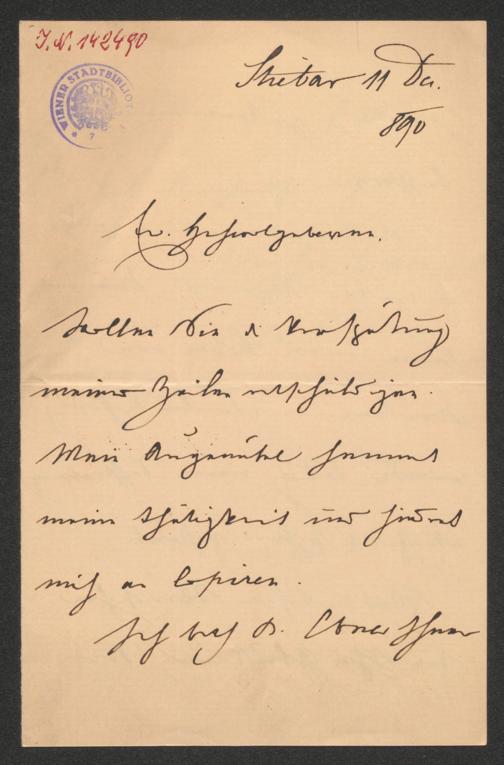 I.N. 142490
WIENER STADTBIBLIOT
Stiebar 11 Dec.
890
Ew. Hochwolgeboren.
wollen Sie d Verspätung
meiner Zeilen entschuldigen.
Mein Augenübel hemmt
meine Thätigkeit und hindert
mich an Copiren.
Ich bath Dr. Ebner